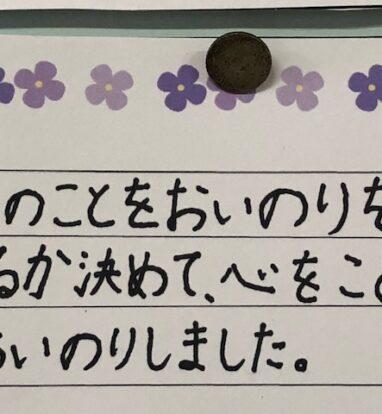 のことをおいのりを
るか決めて、心をこ
おいのりしました。